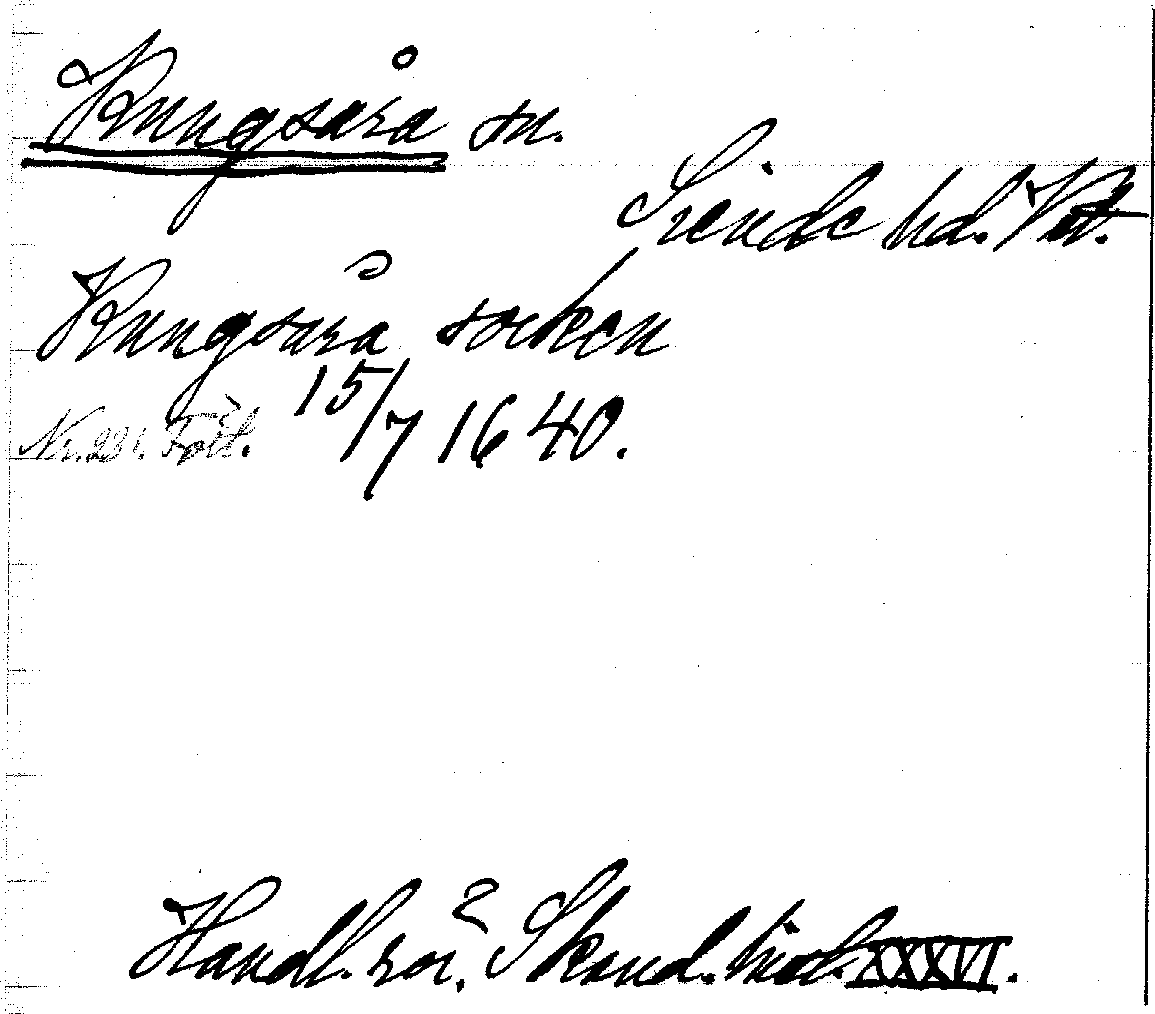 Kungsåra sn.
Siende hd. Vst.
Kungsåra socken
15/7 1640.
Nr. 221. Fol.
Handl. rör. Skand. hist. XXXVI.